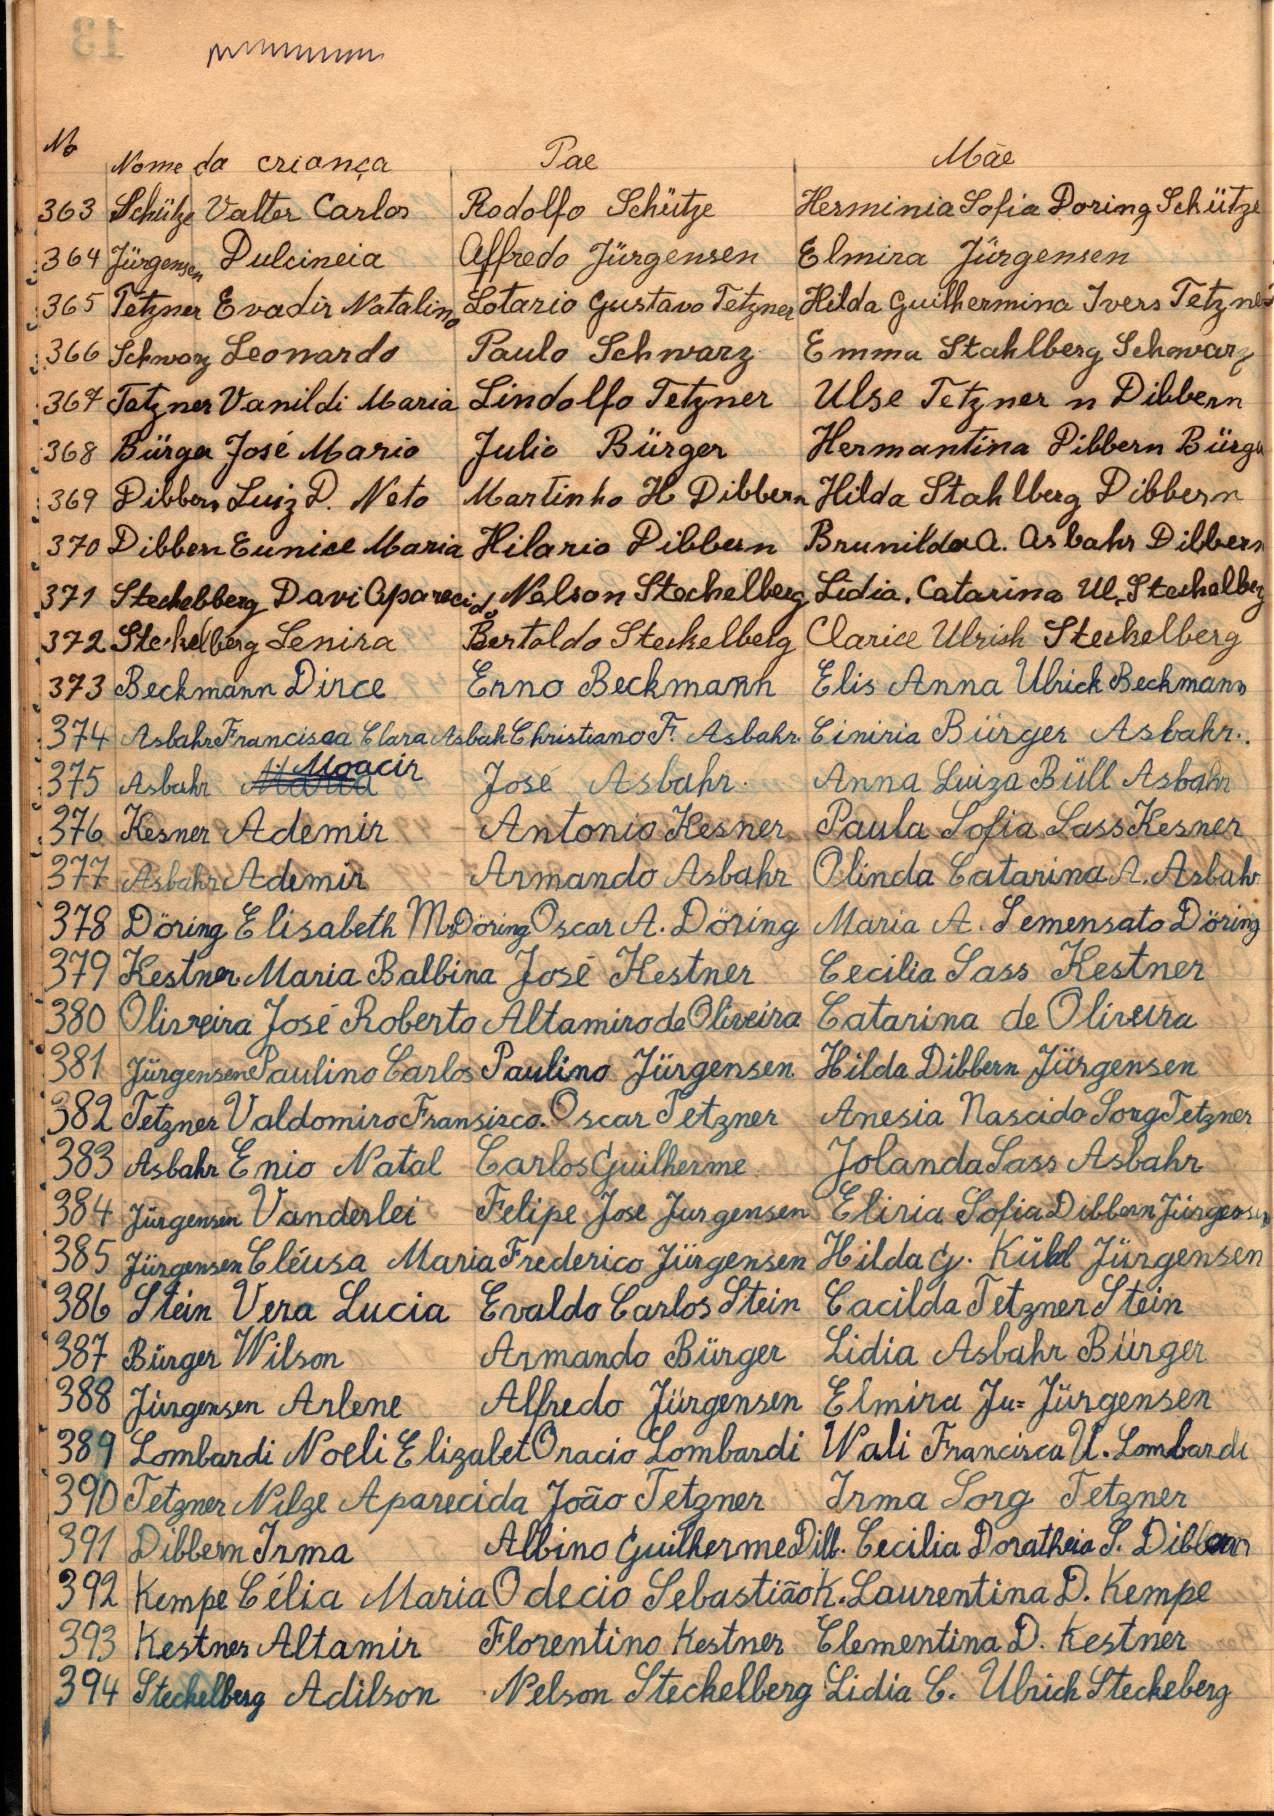 13
No Nome da criança Pae Mãe
363 Schütze Valter Carlos Rodolfo Schütze Herminia Sofia Doring Schütze
364 Jürgensen Dulcineia Alfredo Jürgensen Elmira Jürgensen
365 Tetzner Evadir Natalino Lotario Gustavo Tetzner Hilda Guilhermina Ivers Tetzner
366 Schwarz Leonardo Paulo Schwarz Emma Stahlberg Schwarz
367 Tetzner Vanildi Maria Lindolfo Tetzner Ulse Tetzner n Dibbern
368 Bürger José Mario Julio Bürger Hermantina Dibbern Bürge
369 Dibbern Luiz D. Neto Martinho H Dibbern Hilda Stahlberg Dibbern
370 Dibbern Eunice Maria Hilario Dibbern Brunilda A. Asbahr Dibbern
371 Steckebberg Davi Aparecido Nelson Steckelberg Lidia. Catarina Ul. Steckelberg
372 Steckelberg Lenira Bertoldo Steckelbelg Clarice Ulrich Steckelberg
373 Beckmann Dirce Erno Beckmann Elis Anna Ulrick Beckmann
374 Asbahr Francisca Clara Asbah Christiano F. Asbahr Ciniria Bürger Asbahr.
375 Asbahr Moacir José Asbahr. Anna Luiza Büll Asbahr
376 Kesner Ademir Antonio Kesner Paula Sofia Sass Kesner
377 Asbahr Ademir Armando Asbahr Olinda Catarina A. Asbahr
378 Döring Elisabeth M. Döring Oscar A. Döring Maria A. Semensato Döring
379 Kestner Maria Balbina José Kestner Cecilia Sass Kestner
380 Oliveira José Roberto Altamiro de Oliveira Catarina de Oliveira
381 Jürgensen Paulino Carlos Paulino Jürgensen Hilda Dibbern Jürgensen
382 Tetzner Valdomiro Fransisco. Oscar Tetzner Anesia Nascido Sorg Tetzner
383 Asbahr Enio Natal Carlos Guilherme Jolanda Sass Asbahr
384 Jürgensen Vanderlei Felipe Jose Jurgensen Eliria Sofia Dibbern Jürgensen
385 Jürgensen Cléusa Maria Frederico Jürgensen Hilda G. Kühl Jürgensen
386 Stein Vera Lucia Evaldo Carlos Stein Cacilda Tetzner Stein
387 Bürger Wilson Armando Bürger Lidia Asbahr Bürger
388 Jürgensen Arlene Alfredo Jürgensen Elmira Ju= Jürgensen
389 Lombardi Noeli Elizabet Oracio Lombardi Wali Francisca U. Lombardi
390 Tetzner Nilze Aparecida João Tetzner Irma Sorg Tetzner
391 Dibbern Irma Albino Guilherme Dibb. Cecilia Doratheia S. Dibbern
392 Kempe Célia Maria Odecio Sebastião K. Laurentina D. Kempe
393 Kestner Altamir Florentino Kestner Clementina D. Kestner
394 Steckelberg Adilson Nelson Steckelberg Lidia C. Ulrich Steckeberg